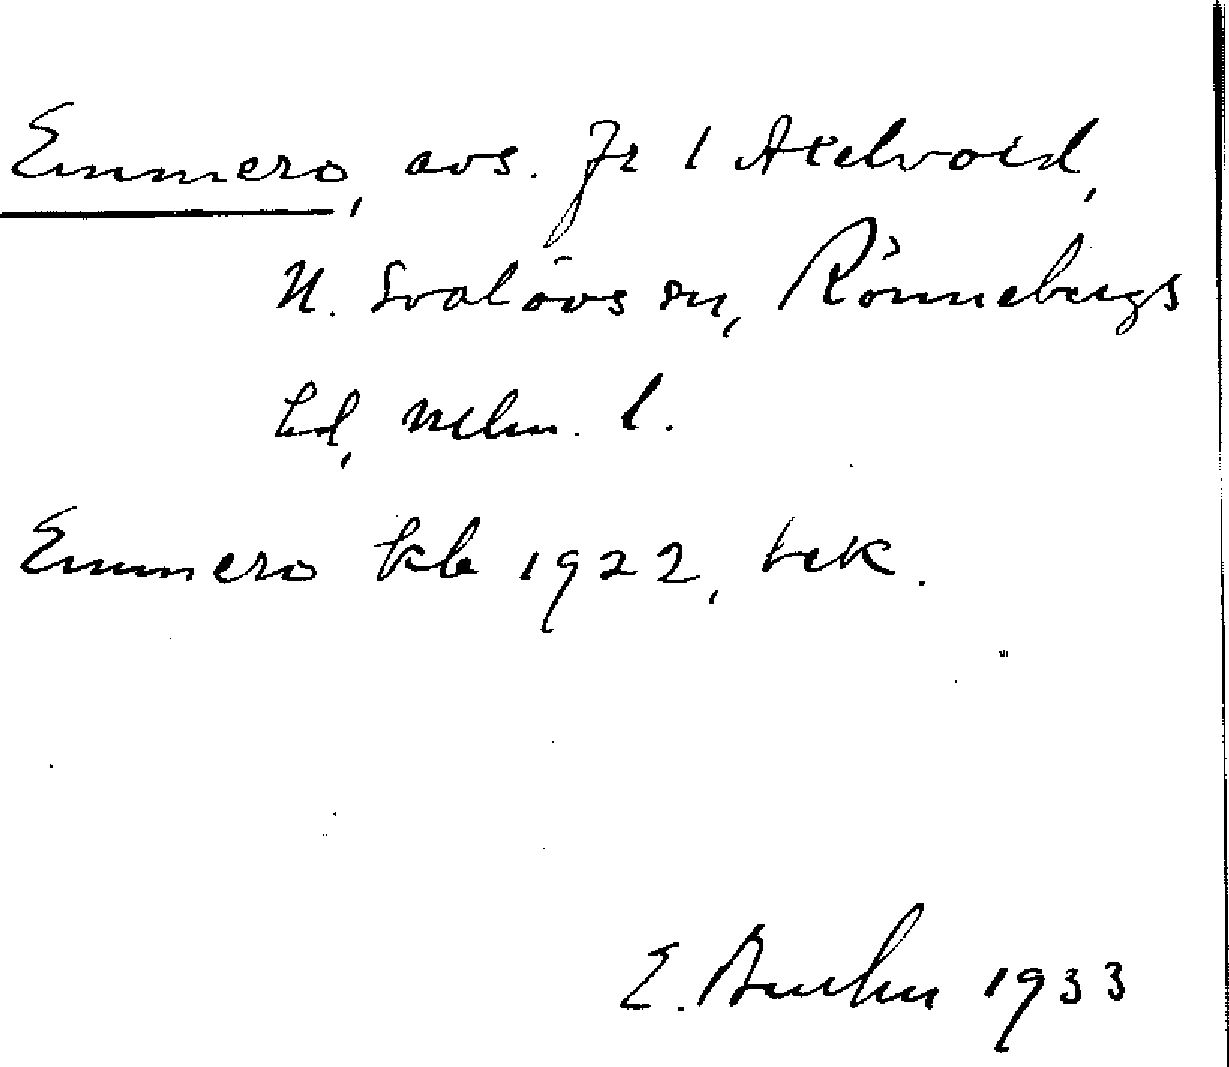 Emmero, avs. fr 1 Axelvold,
N. Svalövs sn, Rönnebergs
hd, Mlm. l.
Emmero kb 1922, bek.
E. 1933